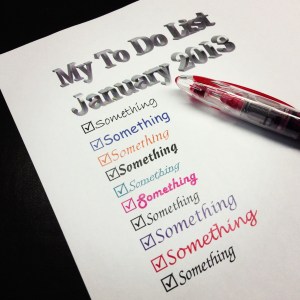 My To Do List
January 2013
Something
Something
Something
Something
Something
Something
Something
Something
Something
Something